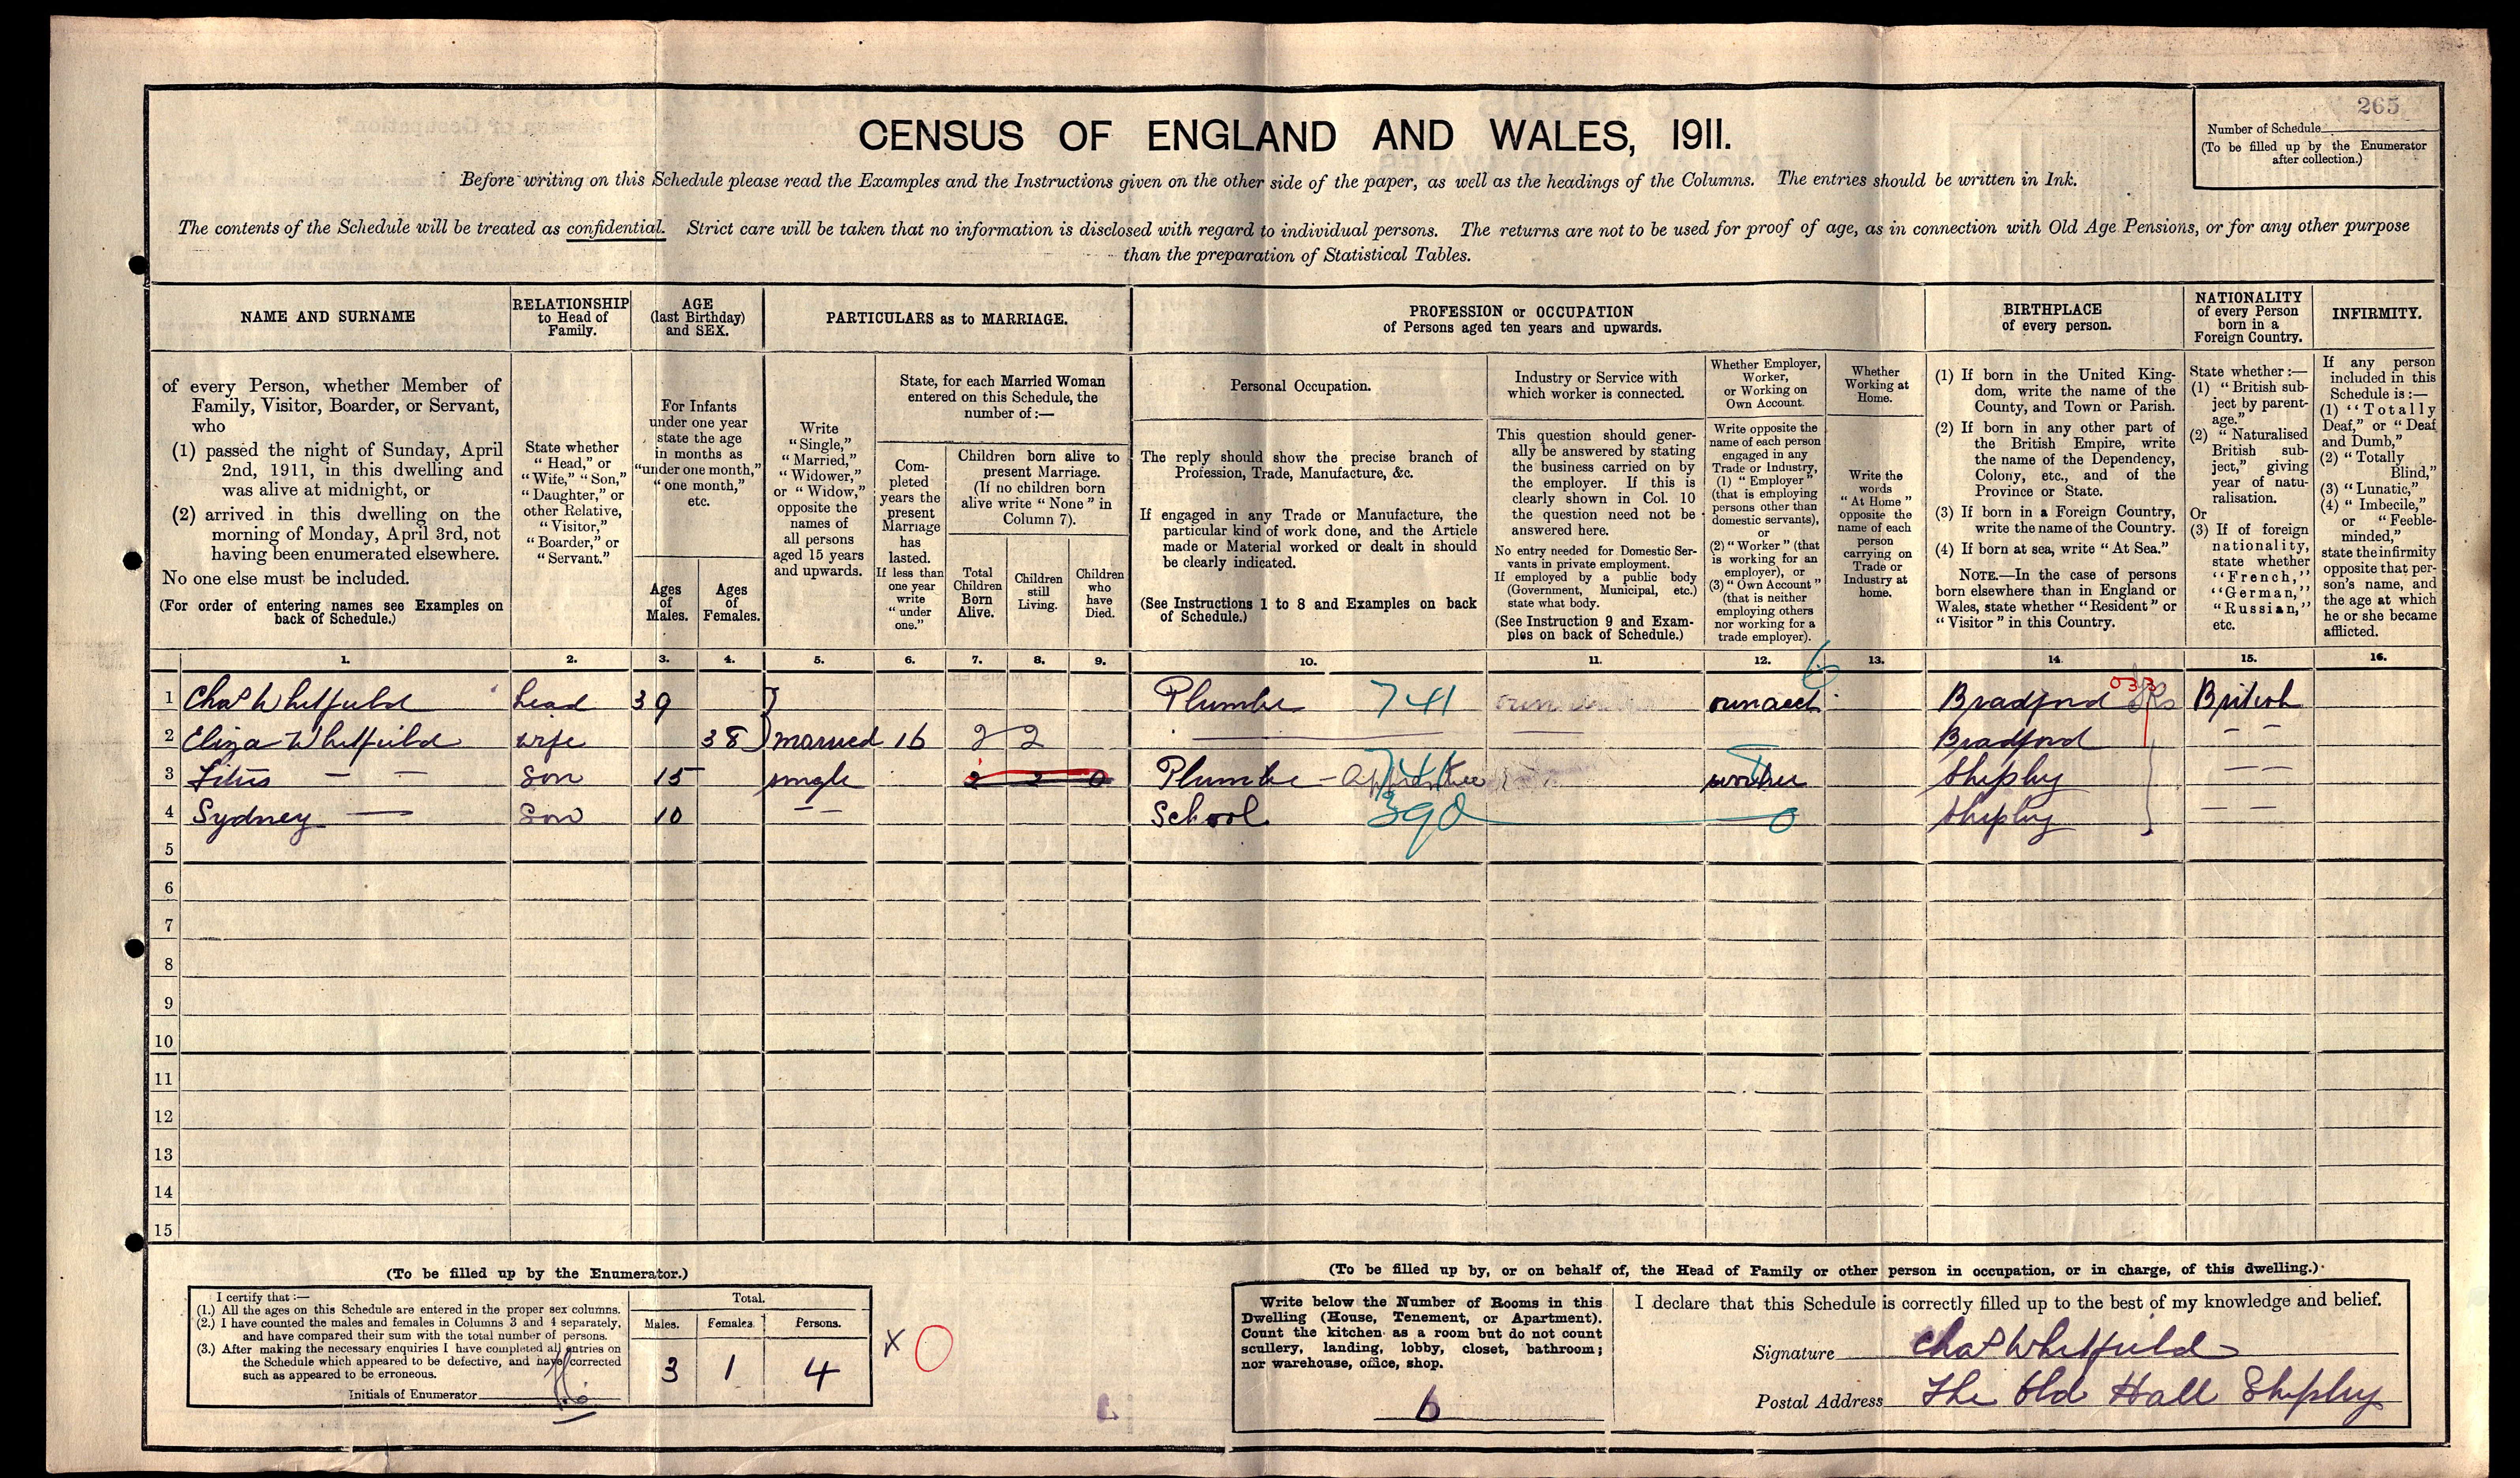 265
Number of Schedule
(To be filled up by the Enumerator
after collection.)
CENSUS OF ENGLAND AND WALES, 1911.
Before writing on this Schedule please read the Examples and the Instructions given on the other side of the paper, as well as the headings of the Columns. The entries should be written in Ink.
The contents of the Schedule will be treated as confidential. Strict care will be taken that no information is disclosed with regard to individual persons. The returns are not to be used for proof of age, as in connection with Old Age Pensions, or for any other purpose
than the preparation of Statistical Tables.
NAME AND SURNAME
of every Person, whether Member of
Family, Visitor, Boarder, or Servant,
who
(1) passed the night of Sunday, April
2nd, 1911, in this dwelling and
was alive at midnight, or
(2) arrived in this dwelling on the
morning of Monday, April 3rd, not
having been enumerated elsewhere.
No one else must be included.
(For order of entering names see Examples on
back of Schedule.)
RELATIONSHIP
to Head of
Family.
State whether
"Head," or
"Wife," "Son,"
"Daughter," or
other Relative,
"Visitor,"
"Boarder," or
"Servant."
AGE
(last Birthday)
and SEX.
For Infants
under one year
state the age
in months as
"under one month,"
"one month,"
etc.
Ages
of
Males.
Ages
of
Females.
PARTICULARS as to MARRIAGE.
Write
"Single,"
"Married,"
"Widower,"
or "Widow,"
opposite the
names of
all persons
aged 15 years
and upwards.
State, for each Married Woman
entered on this Schedule, the
number of :—
Com-
pleted
years the
present
Marriage
has
lasted.
If less than
one year
write
"under
one."
Children born alive to
present Marriage.
(If no children born
alive write "None" in
Column 7).
Total
Children
Born
Alive.
Children
still
Living.
Children
who
have
Died.
PROFESSION or OCCUPATION
of Persons aged ten years and upwards.
Personal Occupation.
The reply should show the precise branch of
Profession, Trade, Manufacture, &c.
If engaged in any Trade or Manufacture, the
particular kind of work done, and the Article
made or Material worked or dealt in should
be clearly indicated.
(See Instructions 1 to 8 and Examples on back
of Schedule.)
Industry or Service with
which worker is connected.
This question should gener-
ally be answered by stating
the business carried on by
the employer. If this is
clearly shown in Col. 10
the question need not be
answered here.
No entry needed for Domestic Ser-
vants in private employment.
If employed by a public body
(Government, Municipal, etc.)
state what body.
(See Instruction 9 and Exam-
ples on back of Schedule.)
Whether Employer,
Worker,
or Working on
Own Account.
Write opposite the
name of each person
engaged in any
Trade or Industry,
(1) "Employer"
(that is employing
persons other than
domestic servants),
or
(2) "Worker" (that
is working for an
employer), or
(3) "Own Account"
(that is neither
employing others
nor working for a
trade employer).
Whether
Working at
Home.
Write the
words
"At Home"
opposite the
name of each
person
carrying on
Trade or
Industry at
home.
BIRTHPLACE
of every person.
(1) If born in the United King-
dom, write the name of the
County, and Town or Parish.
(2) If born in any other part of
the British Empire, write
the name of the Dependency,
Colony, etc., and of the
Province or State.
(3) If born in a Foreign Country,
write the name of the Country.
(4) If born at sea, write "At Sea."
NOTE.—In the case of persons
born elsewhere than in England or
Wales, state whether "Resident" or
"Visitor" in this Country.
NATIONALITY
of every Person
born in a
Foreign Country.
State whether :—
(1) "British sub-
ject by parent-
age."
(2) "Naturalised
British sub-
ject," giving
year of natu-
ralisation.
Or
(3) If of foreign
nationality,
state whether
"French,"
"German,"
"Russian,"
etc.
INFIRMITY.
If any person
included in this
Schedule is:—
(1) "Totally
Deaf," or "Deaf
and Dumb,"
(2) "Totally
Blind,"
(3) "Lunatic,"
(4) "Imbecile,"
or "Feeble-
minded,"
state the infirmity
opposite that per-
son's name, and
the age at which
he or she became
afflicted.
1. 2. 3. 4. 5. 6. 7. 8. 9. 10. 11. 12. 13. 14. 15. 16.
6
1 Chas Whitfield head 39 Plumber 741 own acct Bradford 033 British
2 Eliza Whitfield wife 38 married 16 2 2 Bradford — —
3 Titus — — Son 15 single 2 2 0 Plumber — Apprentice 741 worker Shipley — —
4 Sydney — Son 10 — — School 390 0 Shipley — —
5
6
7
8
9
10
11
12
13
14
15
(To be filled up by the Enumerator.)
I certify that :—
(1.) All the ages on this Schedule are entered in the proper sex columns.
(2.) I have counted the males and females in Columns 3 and 4 separately,
and have compared their sum with the total number of persons.
(3.) After making the necessary enquiries I have completed all entries on
the Schedule which appeared to be defective, and have corrected
such as appeared to be erroneous.
Initials of Enumerator
Total.
Males. Females. Persons.
3 1 4
x 0
(To be filled up by, or on behalf of, the Head of Family or other person in occupation, or in charge, of this dwelling.)
Write below the Number of Rooms in this
Dwelling (House, Tenement, or Apartment).
Count the kitchen as a room but do not count
scullery, landing, lobby, closet, bathroom;
nor warehouse, office, shop.
6
I declare that this Schedule is correctly filled up to the best of my knowledge and belief.
Signature Chas Whitfield
Postal Address The Old Hall Shipley